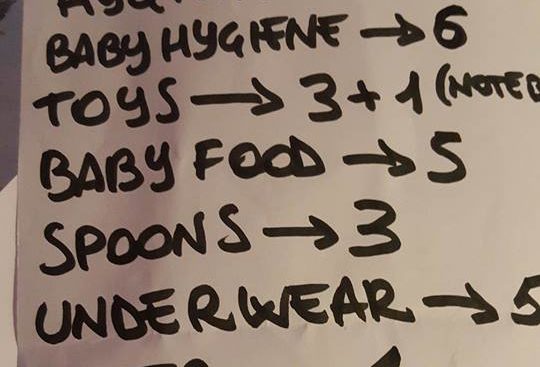 BABY HYGIENE → 6
TOYS → 3 + 1 (NOTEB
BABY FOOD → 5
SPOONS → 3
UNDERWEAR → 5